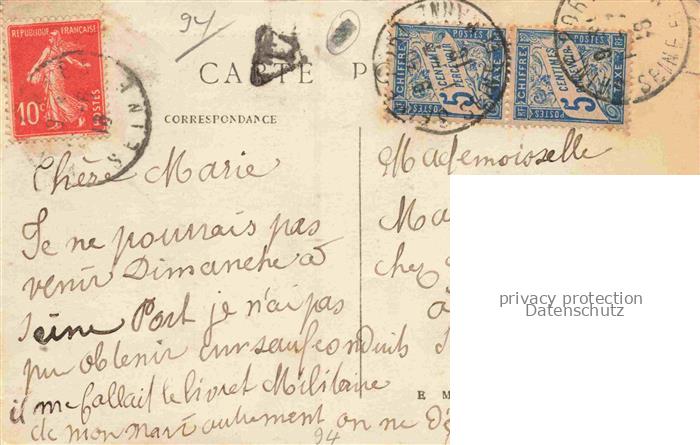 94
RÉPUBLIQUE FRANÇAISE
10c
POSTES
CARTE P
CORRESPONDANCE
CHIFFRE TAXE
POSTES
5 CENTIMES À PERCEVOIR
CHIFFRE TAXE
POSTES
5 CENTIMES À PERCEVOIR
SEINE
Chère Marie
Je ne pourrais pas
venir Dimanche à
Seine Port je n'ai pas
pu obtenir un saufconduit
il me fallait le livret Militaire
de mon mari autrement on ne
94
Mademoiselle
Ma
chez
E M
privacy protection
Datenschutz